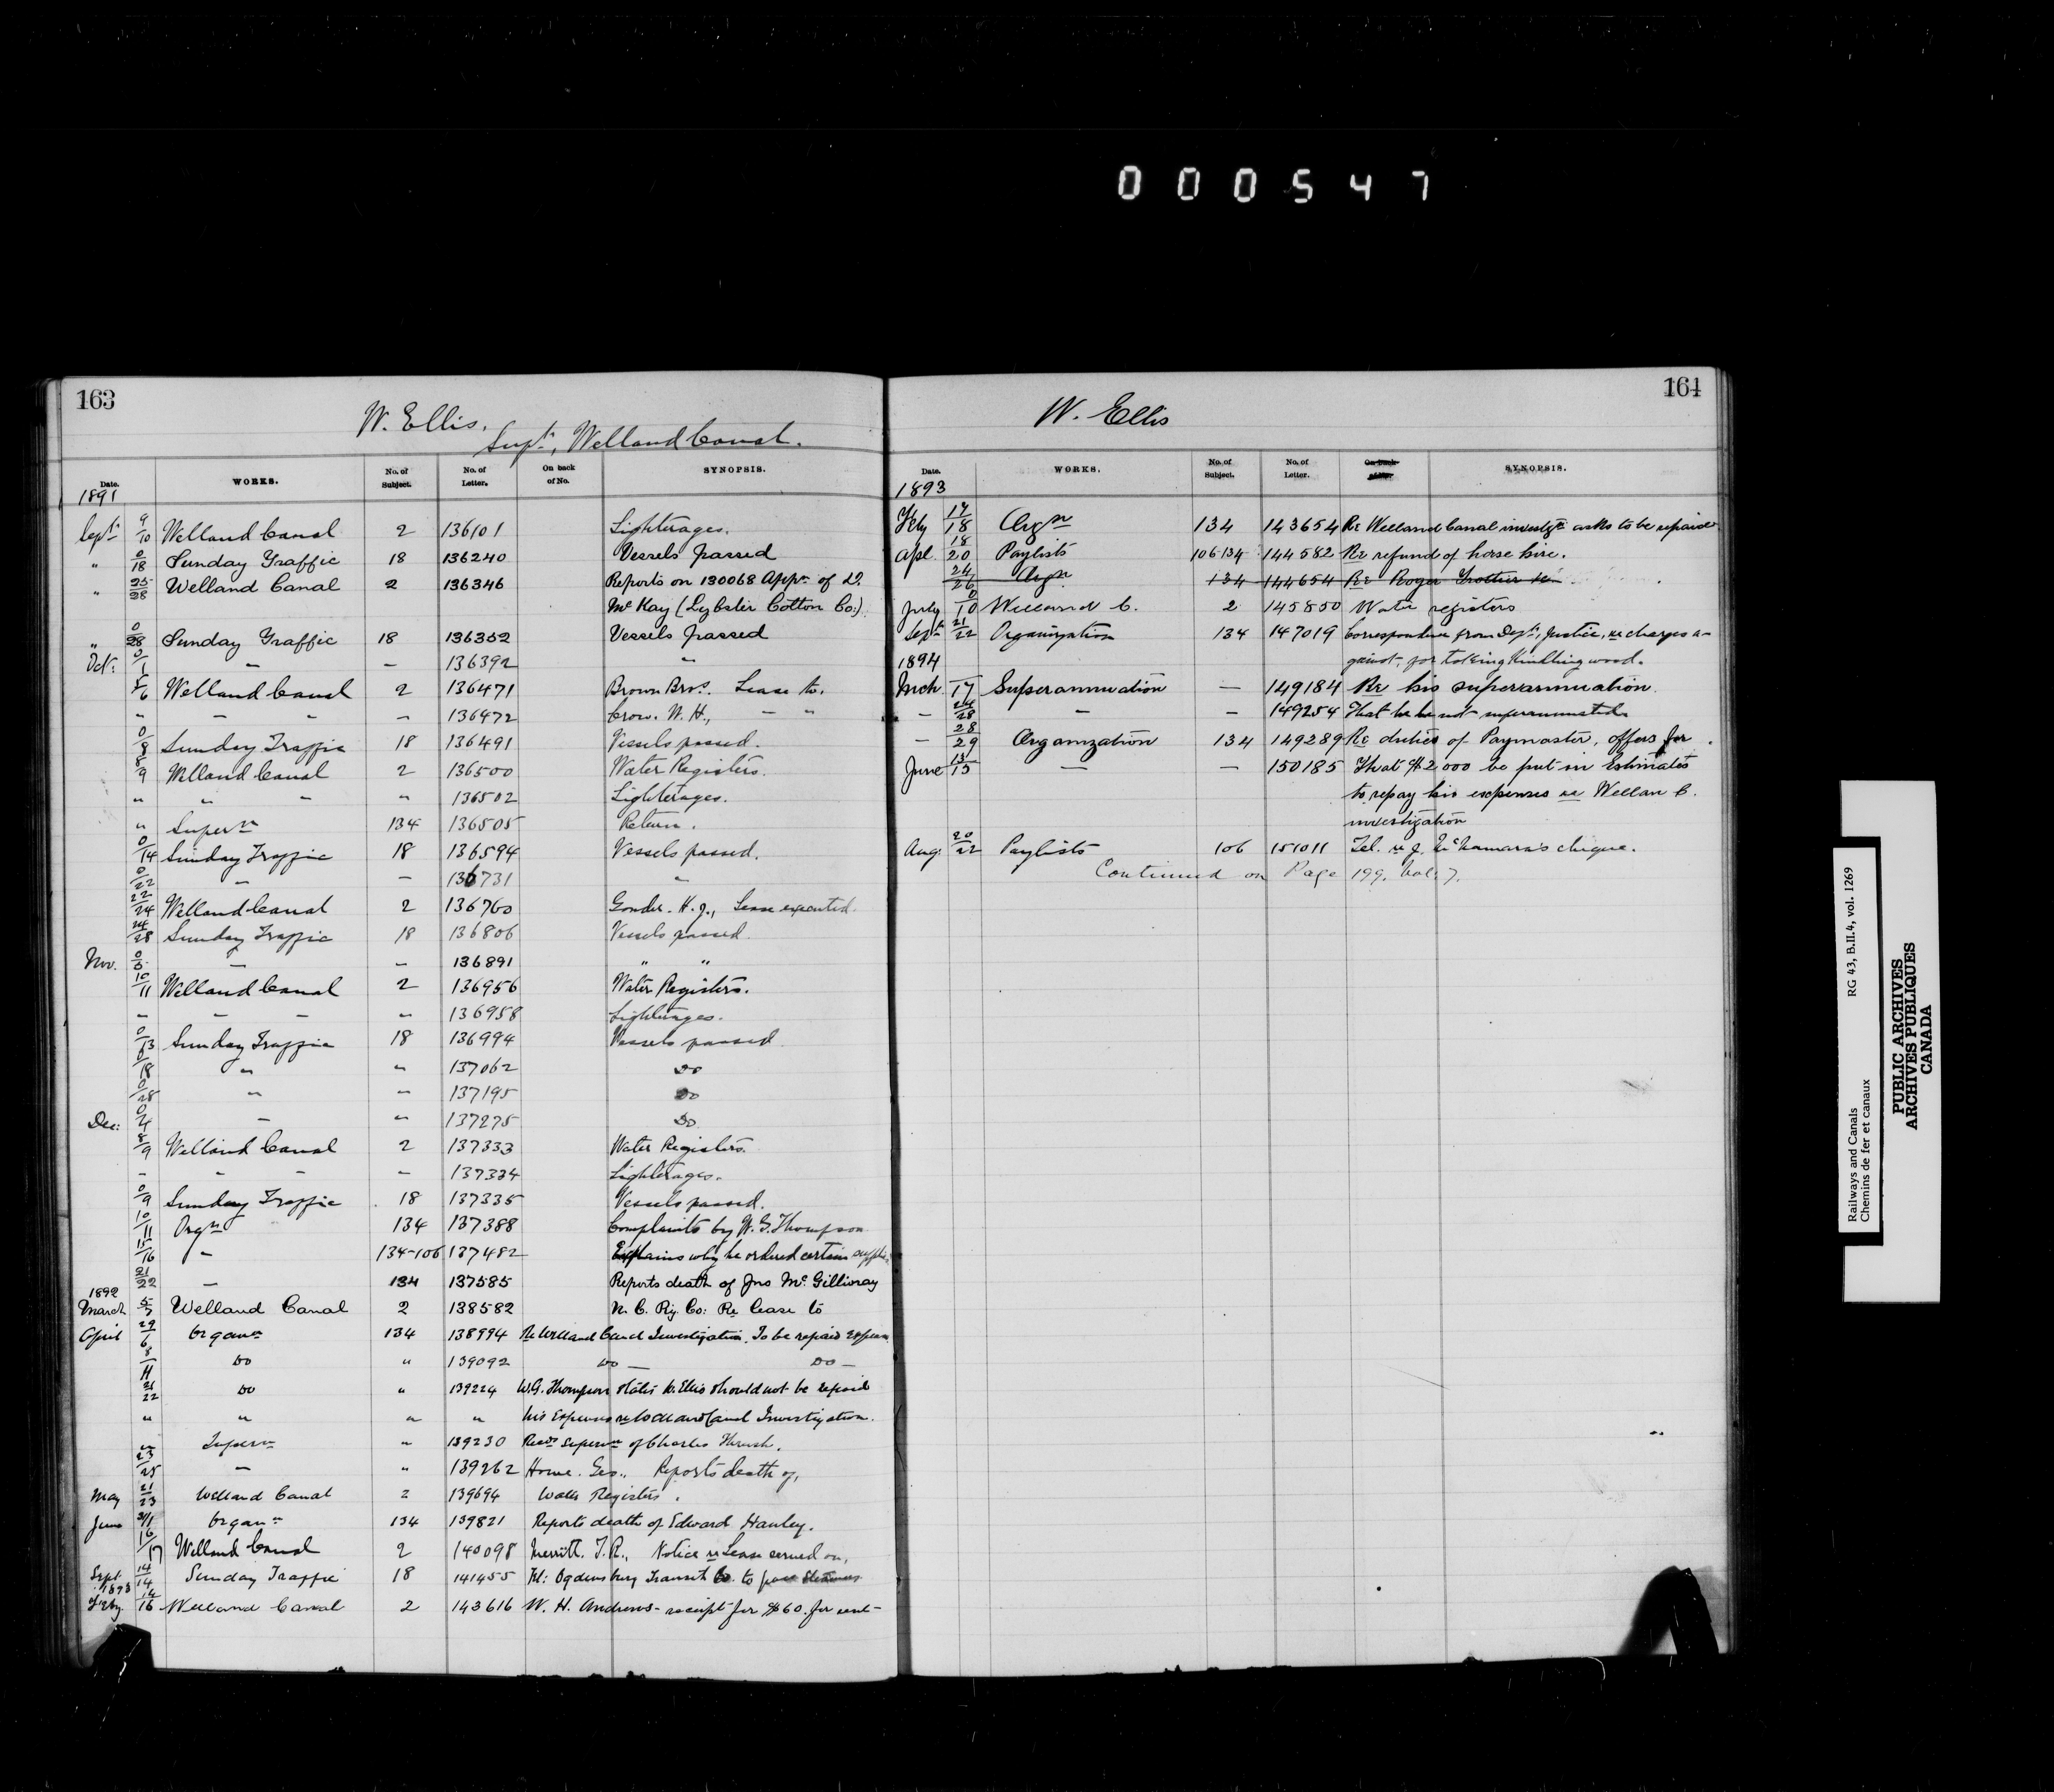 000547
163
W. Ellis.
Supt, Welland Canal.
Date. WORKS. No. of Subject. No. of Letter. On back of No. SYNOPSIS.
1891
Sept 9/10 Welland Canal 2 136101 Lighterages.
" 0/18 Sunday Traffic 18 136240 Vessels passed
" 25/28 Welland Canal 2 136346 Reports on 130068 Appn of D.
McKay (Lybster Cotton Co:)
" 0/28 Sunday Traffic 18 136352 Vessels passed
Oct: 0/1 " — 136392 "
5/6 Welland Canal 2 136471 Brown Bros. Lease to.
" — " — 136472 Crow. W. H., — "
0/8 Sunday Traffic 18 136491 Vessels passed.
8/9 Welland Canal 2 136500 Water Registers.
" " " " 136502 Lighterages.
" Supern 134 136505 Return.
0/14 Sunday Traffic 18 136594 Vessels passed.
0/22 " — 136731 "
22/24 Welland Canal 2 136760 Gonder. H. J., Lease executed.
24/28 Sunday Traffic 18 136806 Vessels passed.
Nov. 0/5 — — 136891 " "
10/11 Welland Canal 2 136956 Water Registers.
" — — " 136958 Lighterages.
0/13 Sunday Traffic 18 136994 Vessels passed
0/18 " " 137062 Do
0/28 " — 137195 Do
Dec: 0/4 — " 137275 Do
8/9 Welland Canal 2 137333 Water Registers.
— " — — 137334 Lighterages.
0/9 Sunday Traffic 18 137335 Vessels passed.
10/11 Orgn 134 137388 Complaints by W. G. Thompson
15/16 " 134-106 137482 Explains why he ordered certain supplies
21/22 — 134 137585 Reports death of Jno McGillivray
1892
March 5/7 Welland Canal 2 138582 N. C. Ry. Co: Re lease to
April 29/6 Organn 134 138994 Re Welland Canal Investigation. To be repaid expenses
8/11 Do " 139092 Do — Do —
21/22 Do " 139224 W.G. Thompson states W. Ellis should not be repaid
" " " " his expenses re Welland Canal Investigation.
" Supern " 139230 Recds Supern of Charles Thrush.
23/25 — " 139262 Howe. Geo., Reports death of,
May 21/23 Welland Canal 2 139694 Water Registers.
June 31/1 Organn 134 139821 Reports death of Edward Hanley.
16/17 Welland Canal 2 140098 Merritt. T. R., Notice re Lease served on,
Sept. 14/14 Sunday Traffic 18 141455 Tel: Ogdensburg Transit Co. to pass steamers
1893
Feby 14/16 Welland Canal 2 143616 W. H. Andrews - receipt for $60. for rent -
164
W. Ellis
Date. WORKS. No. of Subject. No. of Letter. On back of No. SYNOPSIS.
1893
Feby 17/18 Orgn 134 143654 Re Welland Canal investgn asks to be repaid
Apl. 18/20 Paylists 106·134 144582 Re refund of horse hire.
24/26 Orgn 134 144654 Re Roger
July 0/10 Welland C. 2 145850 Water registers
Sept 21/22 Organization 134 147019 Correspondence from Dept, Justice, re charges a-
gainst, for taking kindling wood.
1894
Mch. 17 Superannuation — 149184 Re his superannuation.
— 24/28 — — 149254 That he be not superannuated.
— 28/29 Organization 134 149289 Re duties of Paymaster, offers for.
June 13/15 — — 150185 That $2000 be put in Estimates
to repay his expenses re Wellan C.
investigation
Aug. 20/22 Paylists 106 151011 Tel. re J. McNamara's cheque.
Continued on Page 199. Vol: 7.
Railways and Canals RG 43, B.II.4, vol. 1269
Chemins de fer et canaux
PUBLIC ARCHIVES
ARCHIVES PUBLIQUES
CANADA